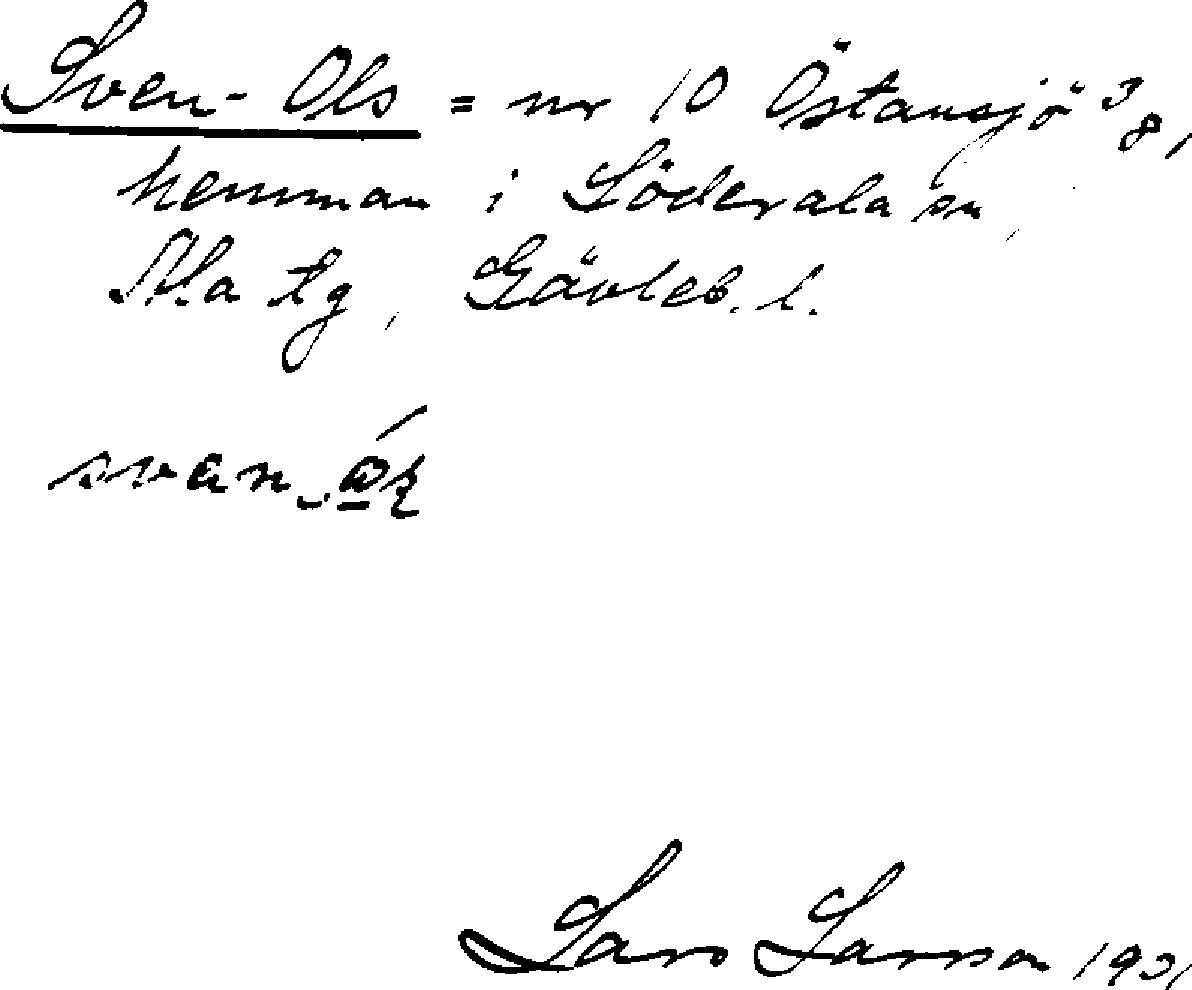 Sven-Ols = nr 10 Östansjö 3/8,
hemman i Söderala sn,
Ala tg, Gävleb. l.
Lars Larsson 1931